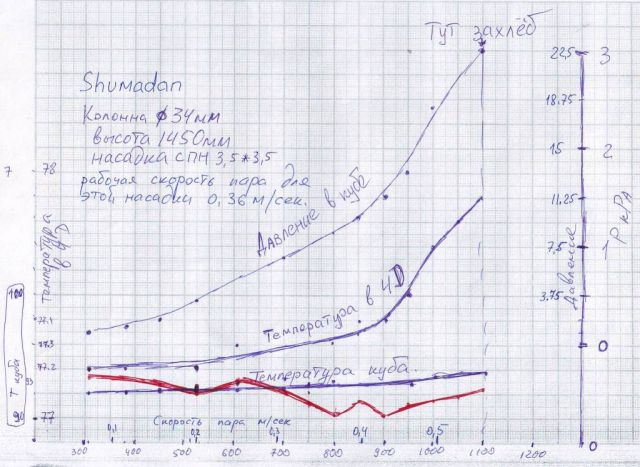 Тут захлёб
Shumadan
Колонна ф34мм
высота 1450мм
насадка СПН 3,5*3,5
рабочая скорость пара для
этой насадки 0,36 м/сек.
Давление в кубе
Температура в ЧД
Температура куба.
Скорость пара м/сек
0,1 0,2 0,3 0,4 0,5
300 400 500 600 700 800 900 1000 1100 1200
7
78
Температура
77.3
77.2
77
100
99
Т куба
22,5
18.75
15
11,25
7,5
3.75
0
Давление
3
2
1
0
Р кПа
0